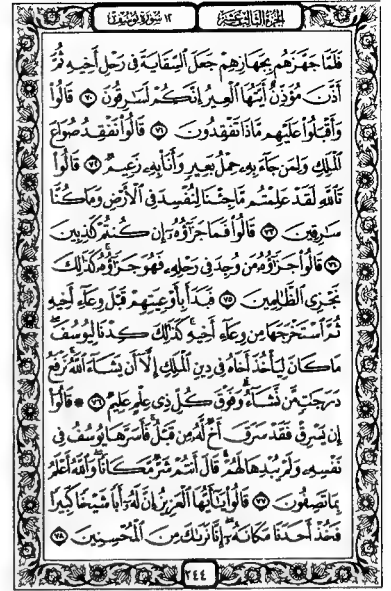 الجزء الثالث عشر ١٢ سورة يوسف
فَلَمَّا جَهَّزَهُم بِجَهَازِهِمْ جَعَلَ ٱلسِّقَايَةَ فِى رَحْلِ أَخِيهِ ثُمَّ
أَذَّنَ مُؤَذِّنٌ أَيَّتُهَا ٱلْعِيرُ إِنَّكُمْ لَسَٰرِقُونَ ٧٠ قَالُوا۟
وَأَقْبَلُوا۟ عَلَيْهِم مَّاذَا تَفْقِدُونَ ٧١ قَالُوا۟ نَفْقِدُ صُوَاعَ
ٱلْمَلِكِ وَلِمَن جَآءَ بِهِۦ حِمْلُ بَعِيرٍ وَأَنَا۠ بِهِۦ زَعِيمٌ ٧٢ قَالُوا۟
تَٱللَّهِ لَقَدْ عَلِمْتُم مَّا جِئْنَا لِنُفْسِدَ فِى ٱلْأَرْضِ وَمَا كُنَّا
سَٰرِقِينَ ٧٣ قَالُوا۟ فَمَا جَزَٰٓؤُهُۥٓ إِن كُنتُمْ كَٰذِبِينَ
٧٤ قَالُوا۟ جَزَٰٓؤُهُۥ مَن وُجِدَ فِى رَحْلِهِۦ فَهُوَ جَزَٰٓؤُهُۥ ۚ كَذَٰلِكَ
نَجْزِى ٱلظَّٰلِمِينَ ٧٥ فَبَدَأَ بِأَوْعِيَتِهِمْ قَبْلَ وِعَآءِ أَخِيهِ
ثُمَّ ٱسْتَخْرَجَهَا مِن وِعَآءِ أَخِيهِ ۚ كَذَٰلِكَ كِدْنَا لِيُوسُفَ ۖ
مَا كَانَ لِيَأْخُذَ أَخَاهُ فِى دِينِ ٱلْمَلِكِ إِلَّآ أَن يَشَآءَ ٱللَّهُ ۚ نَرْفَعُ
دَرَجَٰتٍ مَّن نَّشَآءُ ۗ وَفَوْقَ كُلِّ ذِى عِلْمٍ عَلِيمٌ ٧٦ ۞ قَالُوٓا۟
إِن يَسْرِقْ فَقَدْ سَرَقَ أَخٌ لَّهُۥ مِن قَبْلُ ۚ فَأَسَرَّهَا يُوسُفُ فِى
نَفْسِهِۦ وَلَمْ يُبْدِهَا لَهُمْ ۚ قَالَ أَنتُمْ شَرٌّ مَّكَانًا ۖ وَٱللَّهُ أَعْلَمُ
بِمَا تَصِفُونَ ٧٧ قَالُوا۟ يَٰٓأَيُّهَا ٱلْعَزِيزُ إِنَّ لَهُۥٓ أَبًا شَيْخًا كَبِيرًا
فَخُذْ أَحَدَنَا مَكَانَهُۥٓ ۖ إِنَّا نَرَىٰكَ مِنَ ٱلْمُحْسِنِينَ ٧٨
٢٤٤